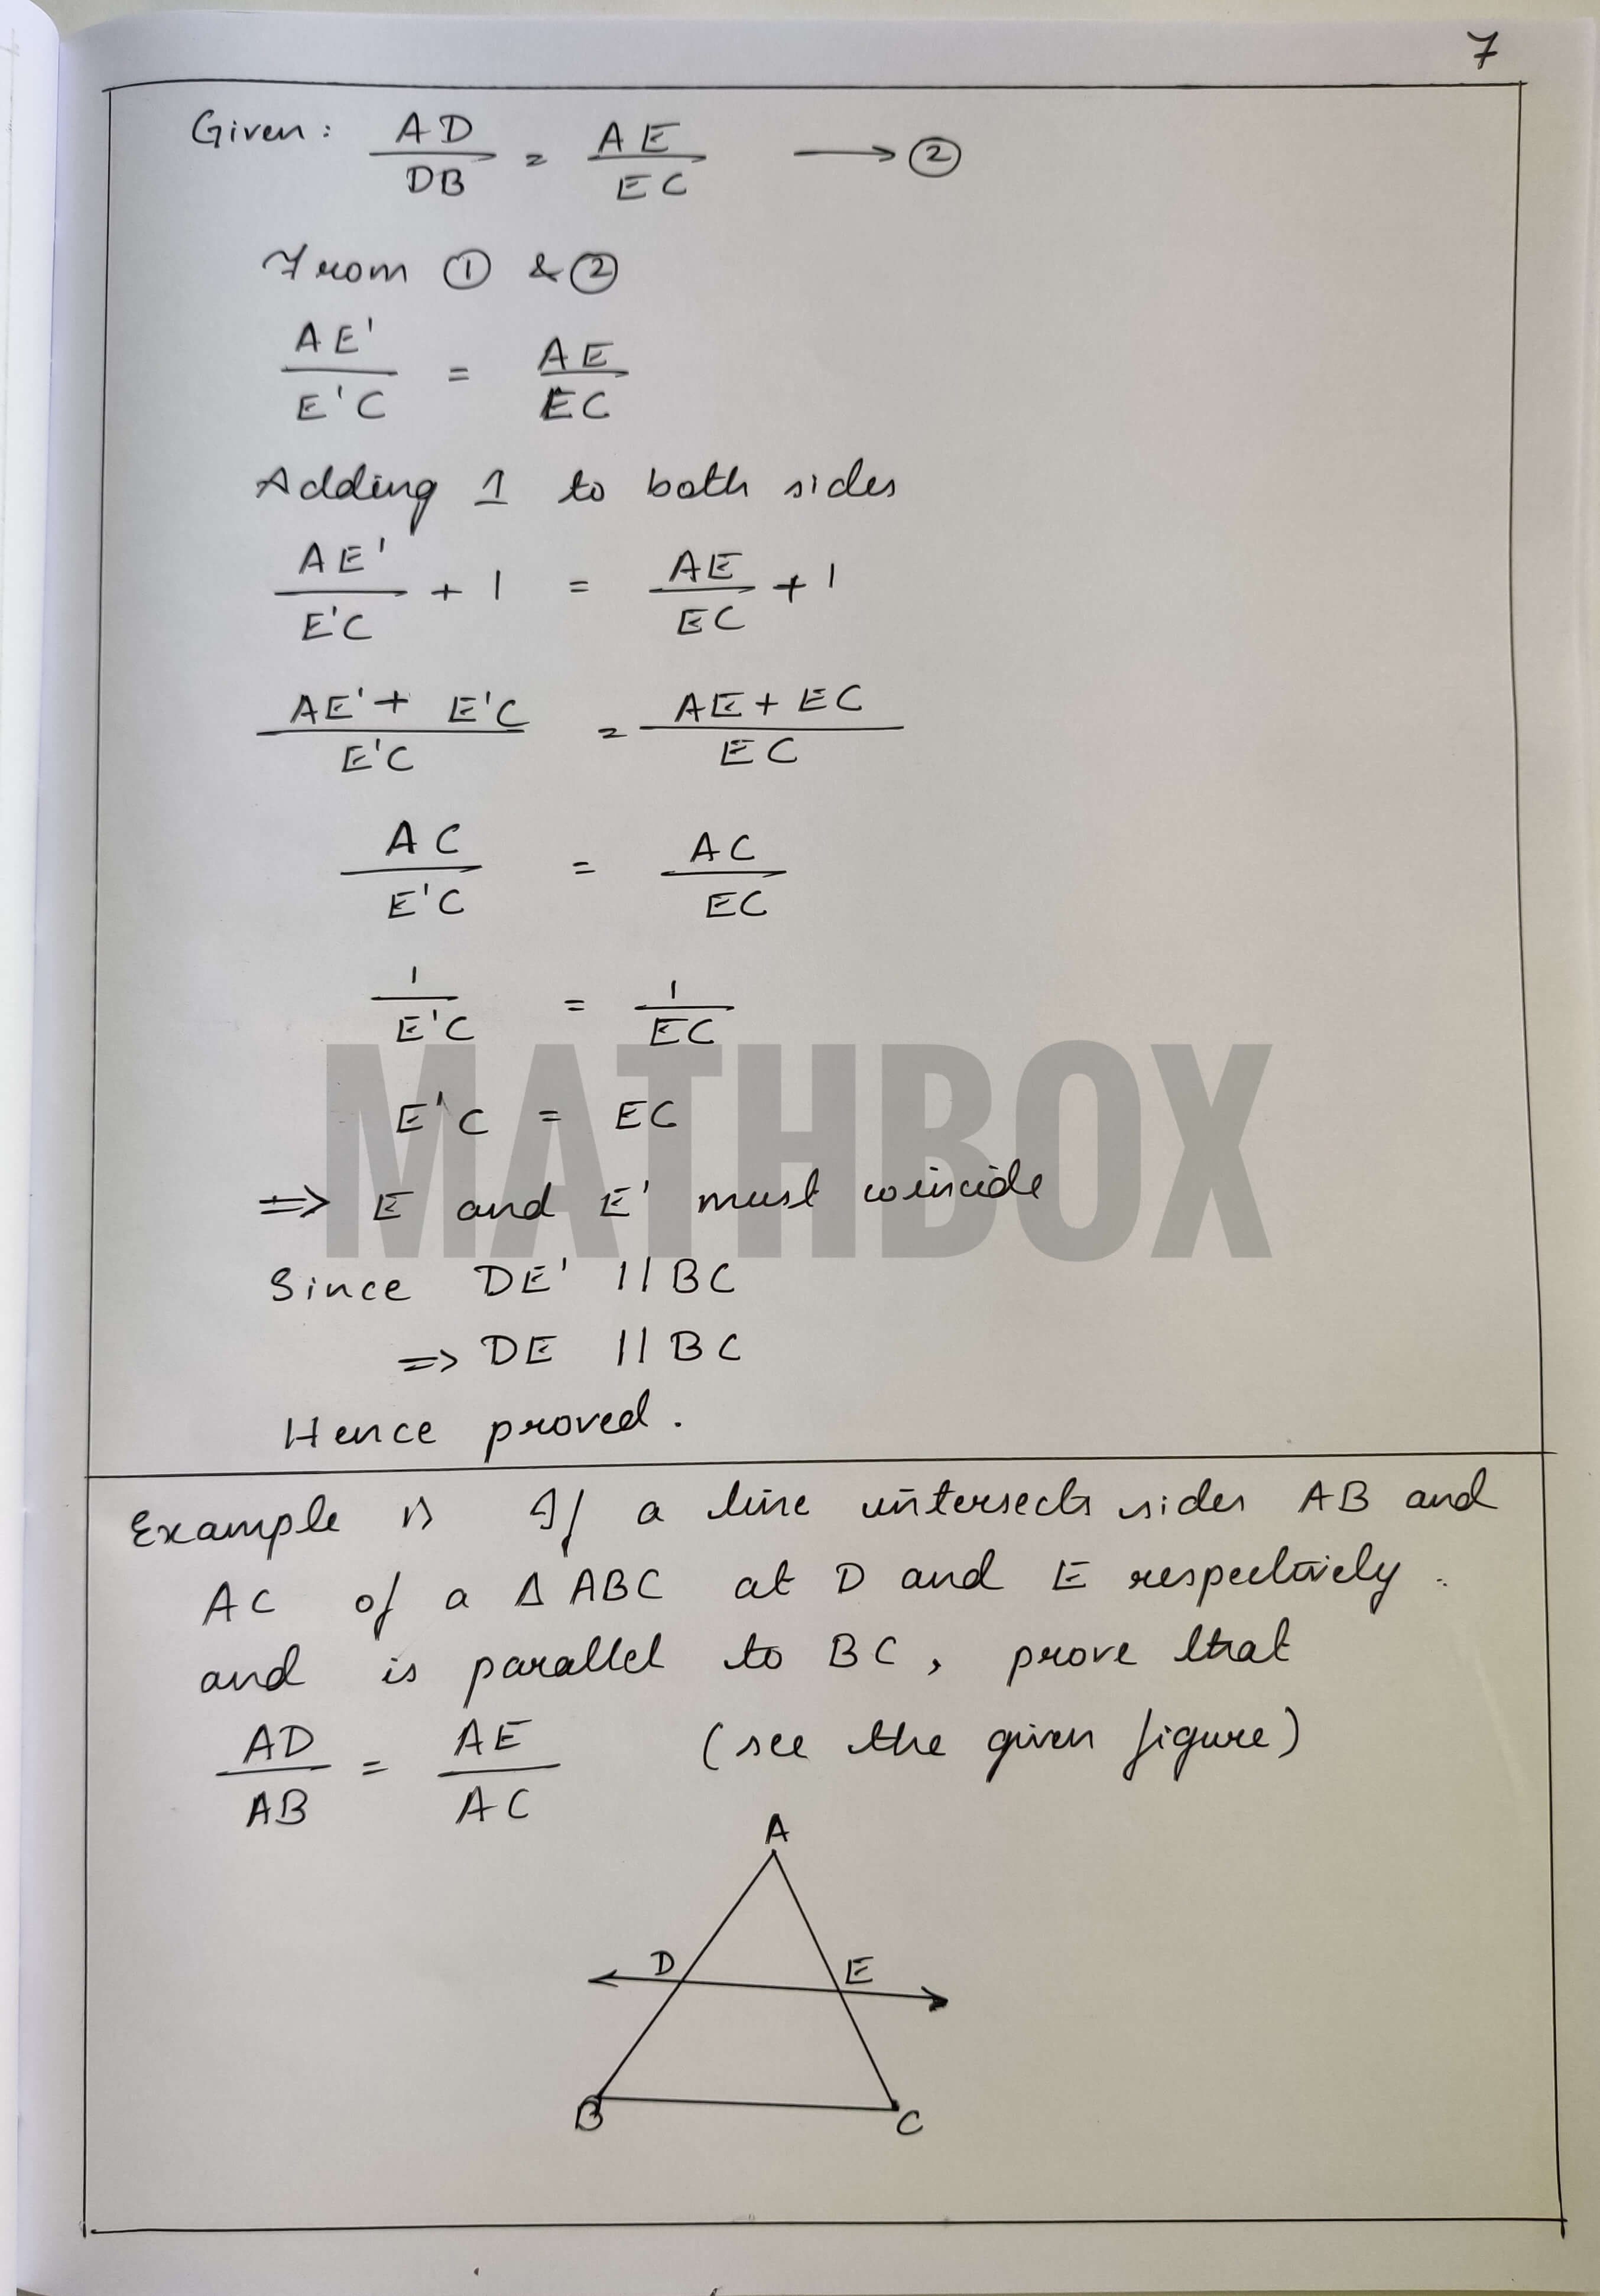 7
Given: AD/DB = AE/EC → ②
From ① & ②
AE'/E'C = AE/EC
Adding 1 to both sides
AE'/E'C + 1 = AE/EC + 1
AE' + E'C/E'C = AE + EC/EC
AC/E'C = AC/EC
1/E'C = 1/EC
E'C = EC
MATHBOX
⇒ E and E' must coincide
Since DE' || BC
⇒ DE || BC
Hence proved.
Example 1) If a line intersects sides AB and
AC of a Δ ABC at D and E respectively
and is parallel to BC, prove that
AD/AB = AE/AC (see the given figure)
A
D E
B C